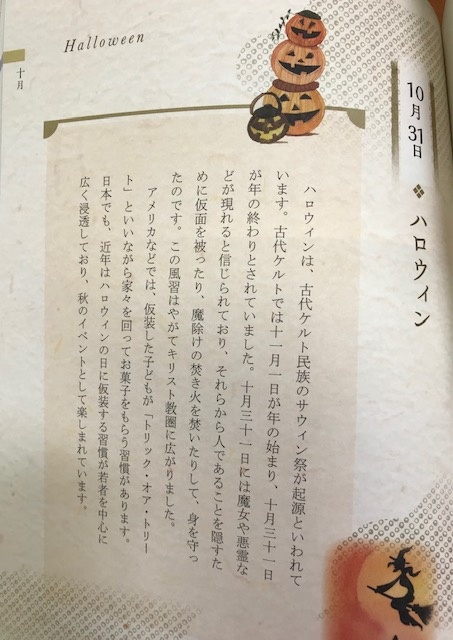 Halloween
十月
10月31日 ❖ ハロウィン
ハロウィンは、古代ケルト民族のサウィン祭が起源といわれて
います。古代ケルトでは十一月一日が年の始まり、十月三十一日
が年の終わりとされていました。十月三十一日には魔女や悪霊な
どが現れると信じられており、それらから人であることを隠すた
めに仮面を被ったり、魔除けの焚き火を焚いたりして、身を守っ
たのです。この風習はやがてキリスト教圏に広がりました。
アメリカなどでは、仮装した子どもが「トリック・オア・トリー
ト」といいながら家々を回ってお菓子をもらう習慣があります。
日本でも、近年はハロウィンの日に仮装する習慣が若者を中心に
広く浸透しており、秋のイベントとして楽しまれています。